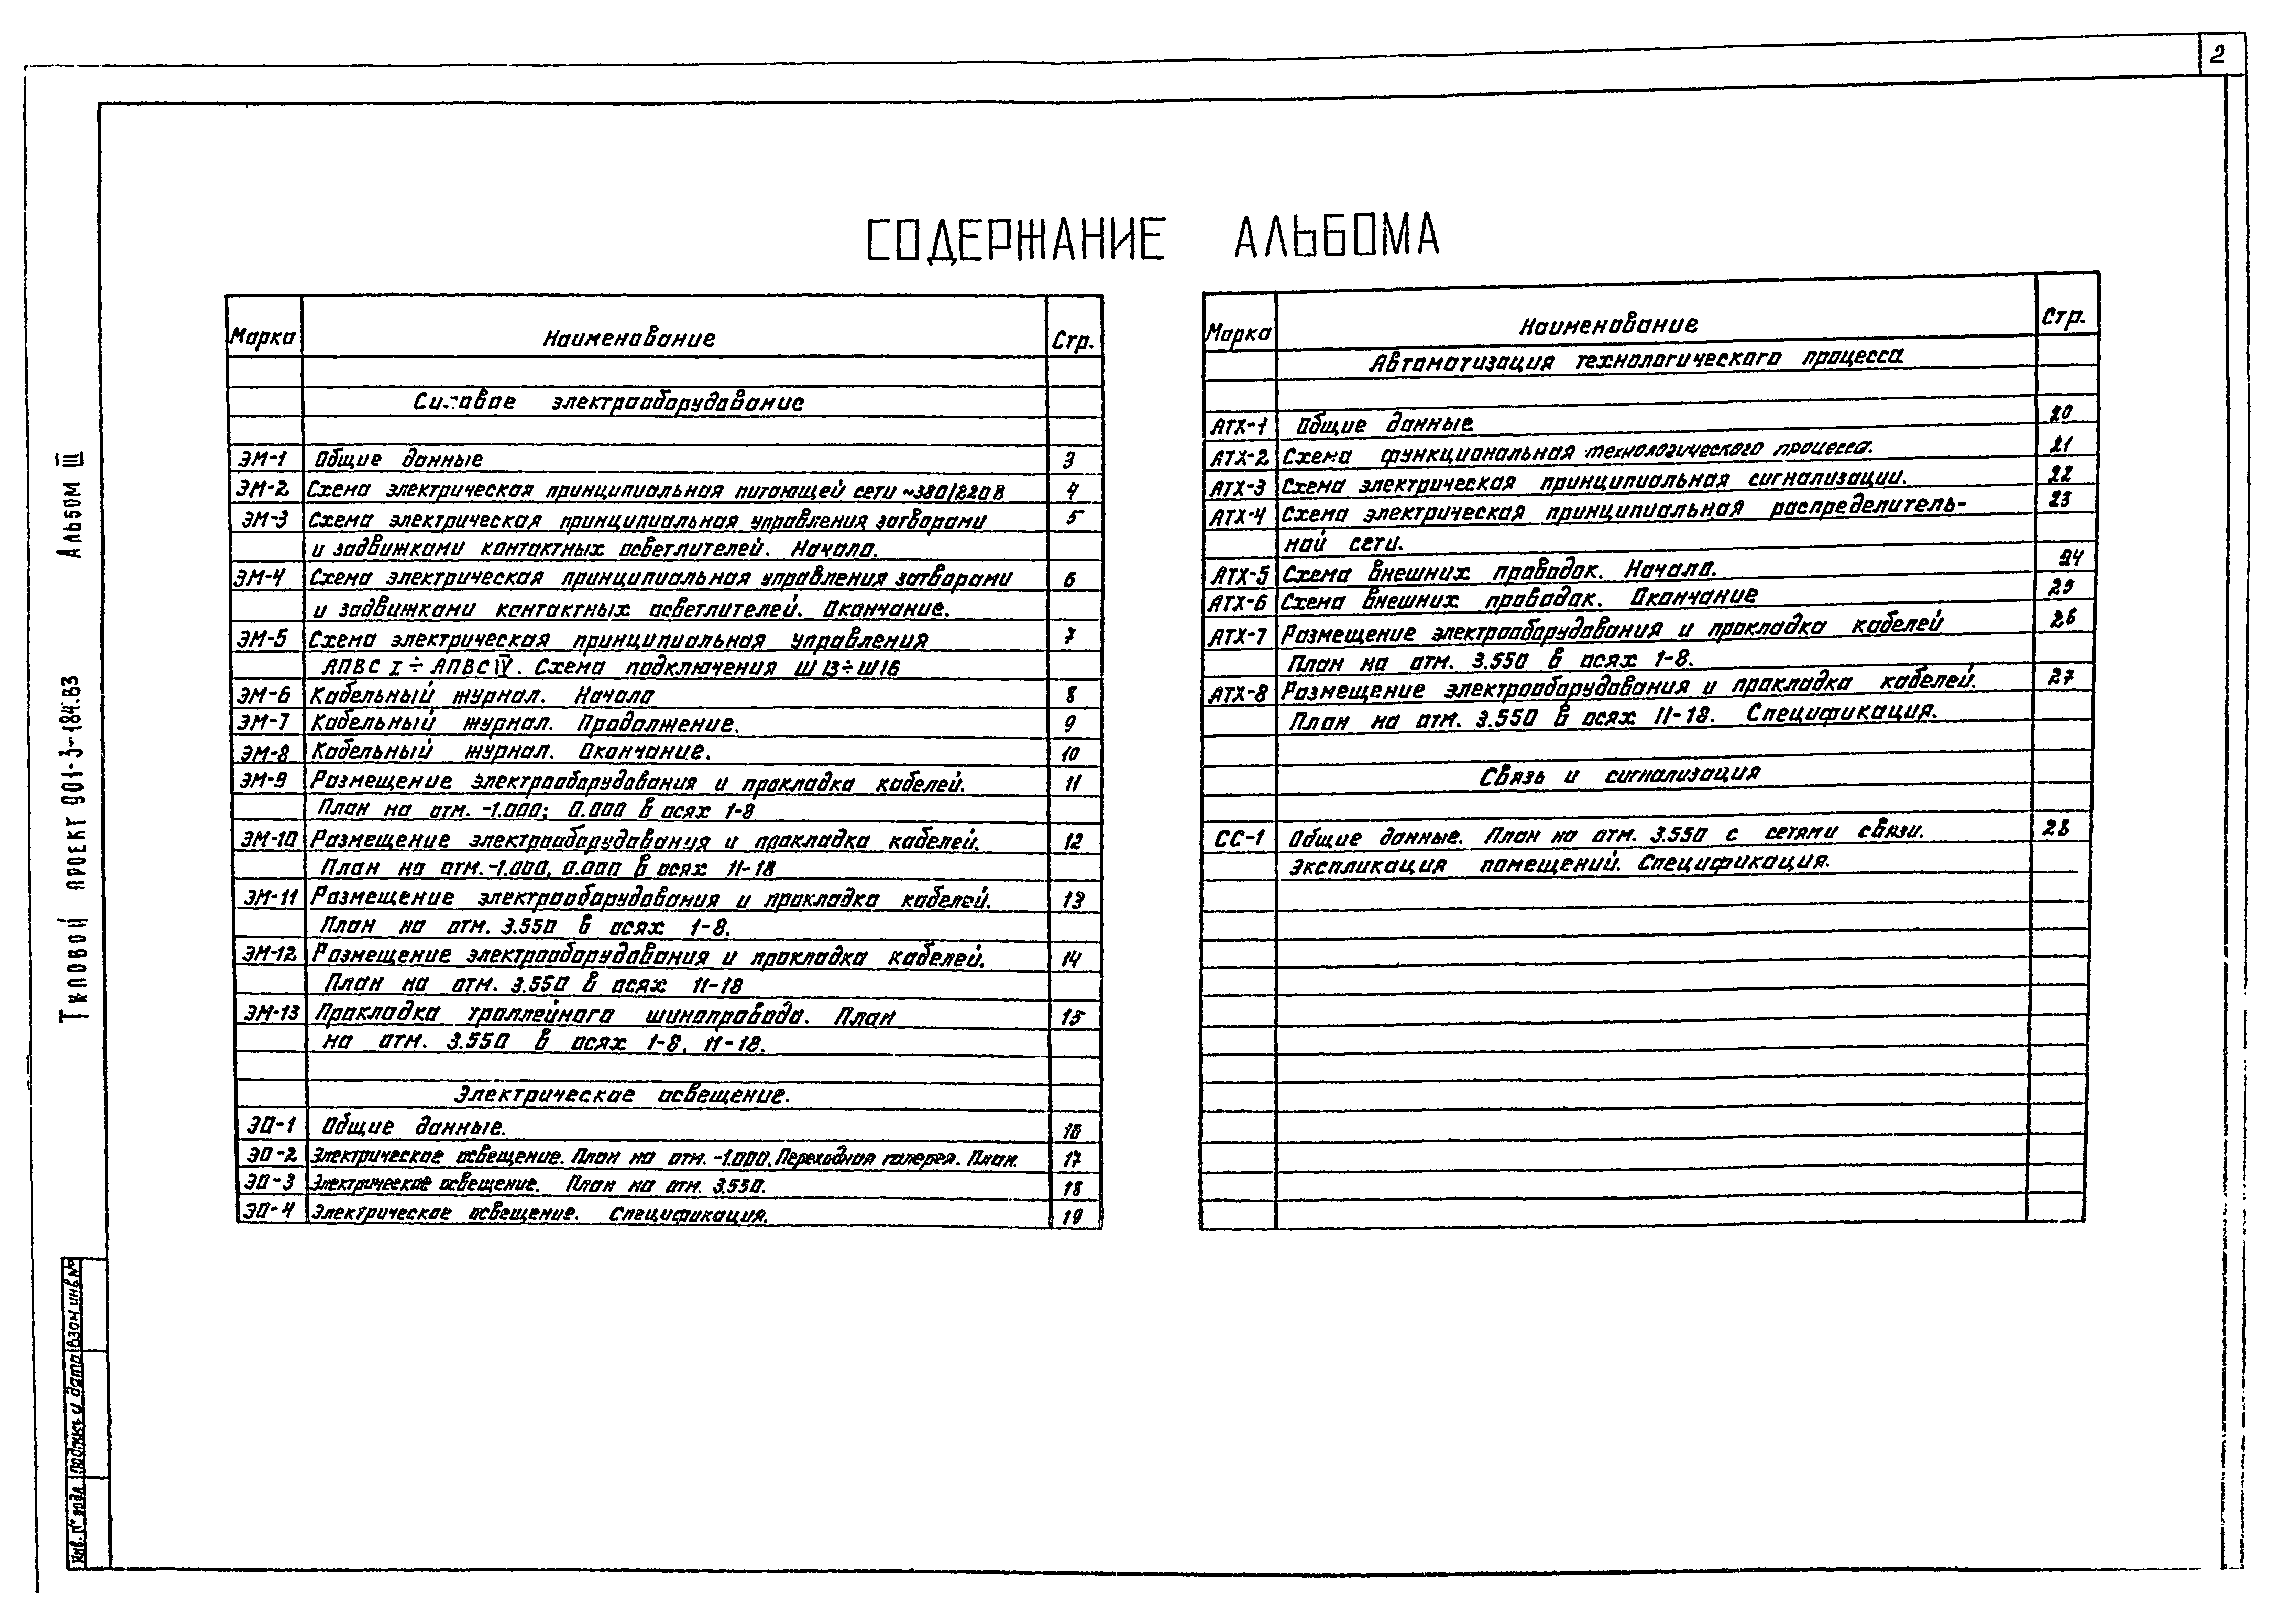 2
СОДЕРЖАНИЕ АЛЬБОМА
Марка Наименование Стр.
Силовое электрооборудование
ЭМ-1 Общие данные 3
ЭМ-2 Схема электрическая принципиальная питающей сети ~380/220В 4
ЭМ-3 Схема электрическая принципиальная управления затворами 5
и задвижками контактных осветлителей. Начало.
ЭМ-4 Схема электрическая принципиальная управления затворами 6
и задвижками контактных осветлителей. Окончание.
ЭМ-5 Схема электрическая принципиальная управления 7
АПВС I ÷ АПВС IV. Схема подключения Ш13÷Ш16
ЭМ-6 Кабельный журнал. Начало 8
ЭМ-7 Кабельный журнал. Продолжение. 9
ЭМ-8 Кабельный журнал. Окончание. 10
ЭМ-9 Размещение электрооборудования и прокладка кабелей. 11
План на отм. -1.000; 0.000 в осях 1-8
ЭМ-10 Размещение электрооборудования и прокладка кабелей. 12
План на отм. -1.000, 0.000 в осях 11-18
ЭМ-11 Размещение электрооборудования и прокладка кабелей. 13
План на отм. 3.550 в осях 1-8.
ЭМ-12 Размещение электрооборудования и прокладка кабелей. 14
План на отм. 3.550 в осях 11-18
ЭМ-13 Прокладка троллейного шинопровода. План 15
на отм. 3.550 в осях 1-8, 11-18.
Электрическое освещение.
ЭО-1 Общие данные. 16
ЭО-2 Электрическое освещение. План на отм. -1.000. Переходная галерея. План. 17
ЭО-3 Электрическое освещение. План на отм. 3.550. 18
ЭО-4 Электрическое освещение. Спецификация. 19
Марка Наименование Стр.
Автоматизация технологического процесса
АТХ-1 Общие данные 20
АТХ-2 Схема функциональная технологического процесса. 21
АТХ-3 Схема электрическая принципиальная сигнализации. 22
АТХ-4 Схема электрическая принципиальная распределитель- 23
ной сети.
АТХ-5 Схема внешних проводок. Начало. 24
АТХ-6 Схема внешних проводок. Окончание 25
АТХ-7 Размещение электрооборудования и прокладка кабелей 26
План на отм. 3.550 в осях 1-8.
АТХ-8 Размещение электрооборудования и прокладка кабелей. 27
План на отм. 3.550 в осях 11-18. Спецификация.
Связь и сигнализация
СС-1 Общие данные. План на отм. 3.550 с сетями связи. 28
Экспликация помещений. Спецификация.
Типовой проект 901-3-184.83 Альбом III
Инв. № подл. Подпись и дата Взам инв.№